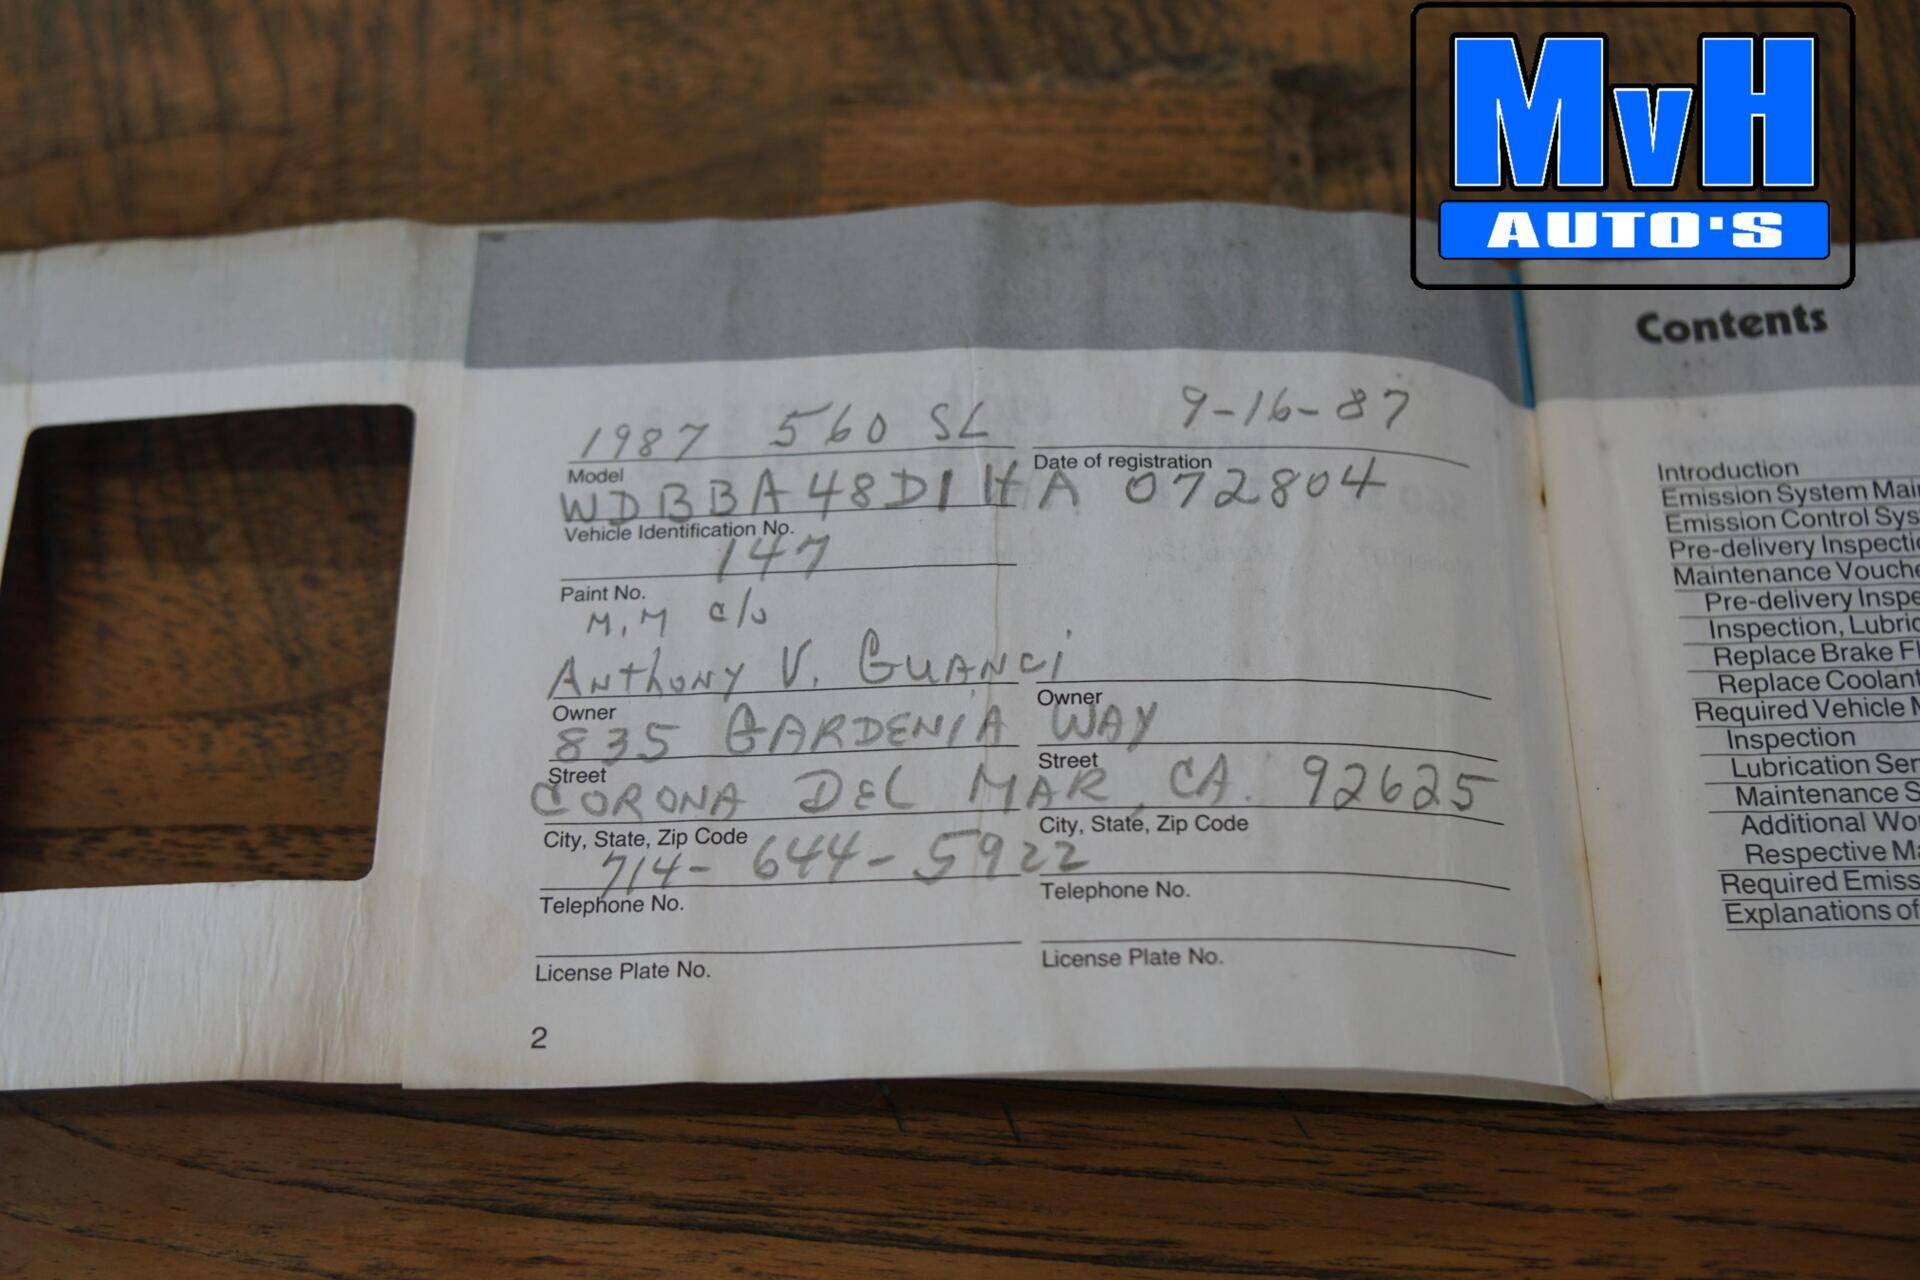 MvH
AUTO'S
1987 560 SL 9-16-87
Model Date of registration
WDBBA48D1HA072804
Vehicle Identification No.
147
Paint No.
M,M c/o
Anthony V. Guanci
Owner Owner
835 GARDENIA WAY
Street Street
CORONA DEL MAR, CA. 92625
City, State, Zip Code City, State, Zip Code
714-644-5922
Telephone No. Telephone No.
License Plate No. License Plate No.
2
Contents
Introduction
Emission System Mai
Emission Control Sys
Pre-delivery Inspecti
Maintenance Vouche
Pre-delivery Inspe
Inspection, Lubric
Replace Brake Fl
Replace Coolant
Required Vehicle M
Inspection
Lubrication Ser
Maintenance S
Additional Wo
Respective Ma
Required Emiss
Explanations of